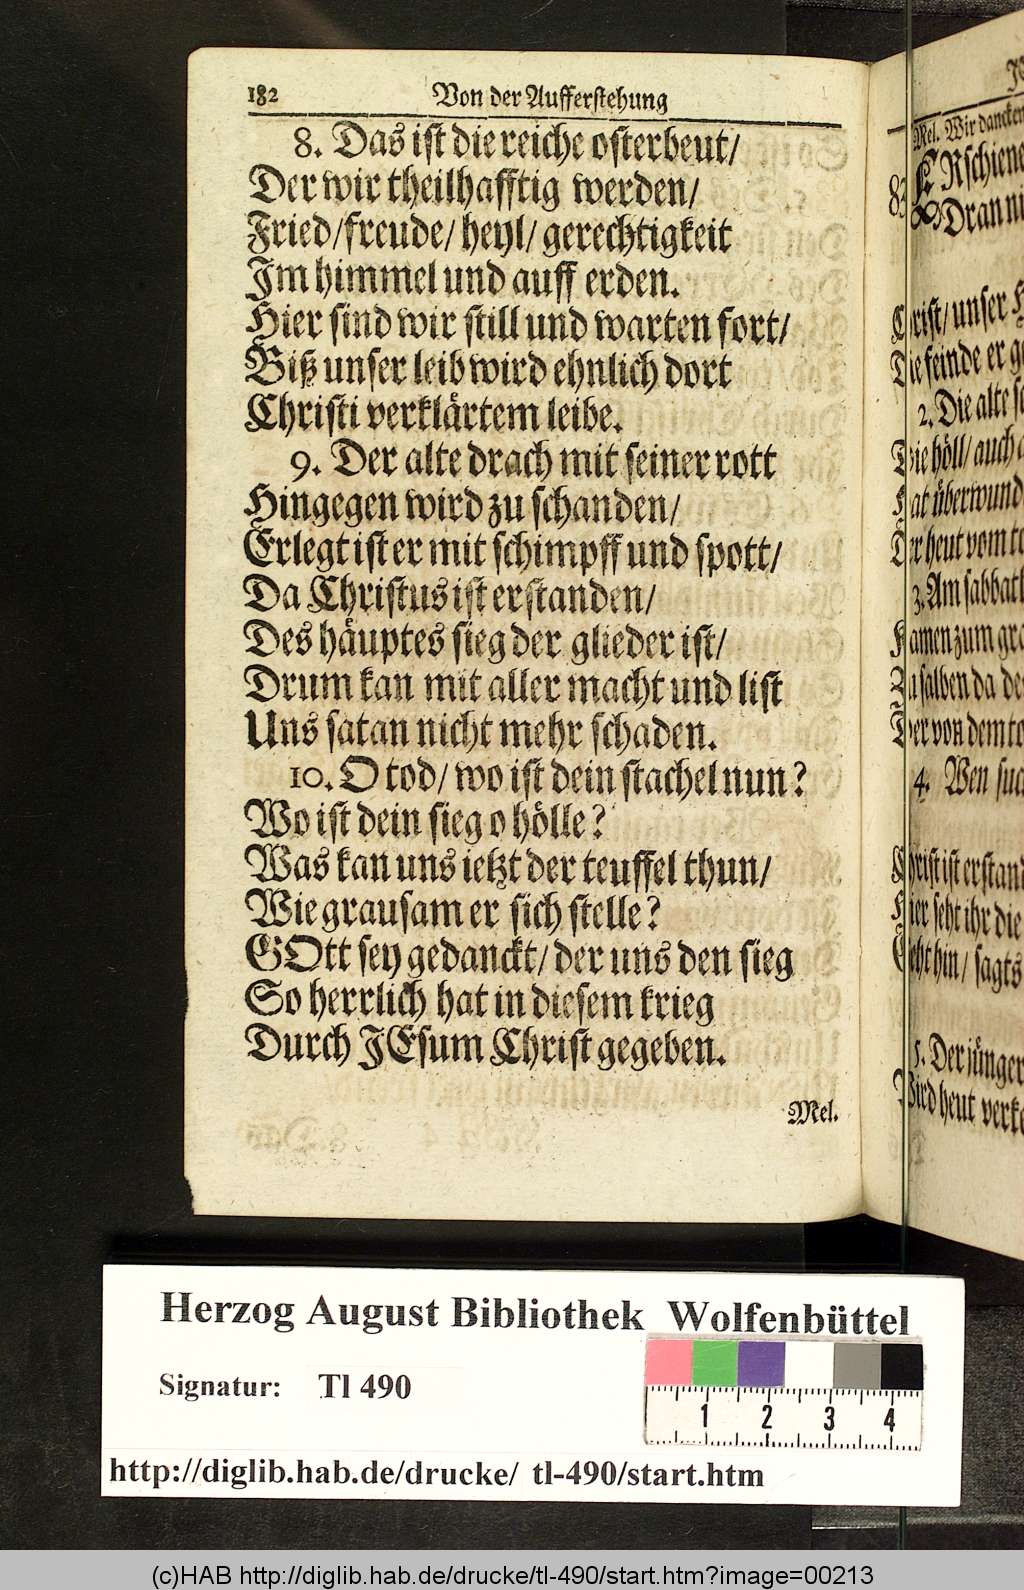 182 Von der Aufferstehung
8. Das ist die reiche osterbeut/
Der wir theilhafftig werden/
Fried/freude/ heyl/ gerechtigkeit
Im himmel und auff erden.
Hier sind wir still und warten fort/
Biß unser leib wird ehnlich dort
Christi verklärtem leibe.
9. Der alte drach mit seiner rott
Hingegen wird zu schanden/
Erlegt ist er mit schimpff und spott/
Da Christus ist erstanden/
Des häuptes sieg der glieder ist/
Drum kan mit aller macht und list
Uns satan nicht mehr schaden.
10. O tod/ wo ist dein stachel nun?
Wo ist dein sieg o hölle?
Was kan uns ietzt der teuffel thun/
Wie grausam er sich stelle?
GOtt sey gedanckt/ der uns den sieg
So herrlich hat in diesem krieg
Durch JEsum Christ gegeben.
Mel.
Mel. Wir dancken
Rschiene
Dran
/ unser
feinde er
2. Die alte
höll/ auch
überwund
heut vom
3. Am sabbath
zum
salben da
von dem
4. Wen
ist
seht ihr die
hin/ sagts
5. Der jünger
heut
Herzog August Bibliothek Wolfenbüttel
Signatur: Tl 490
1 2 3 4
http://diglib.hab.de/drucke/ tl-490/start.htm
(c)HAB http://diglib.hab.de/drucke/tl-490/start.htm?image=00213